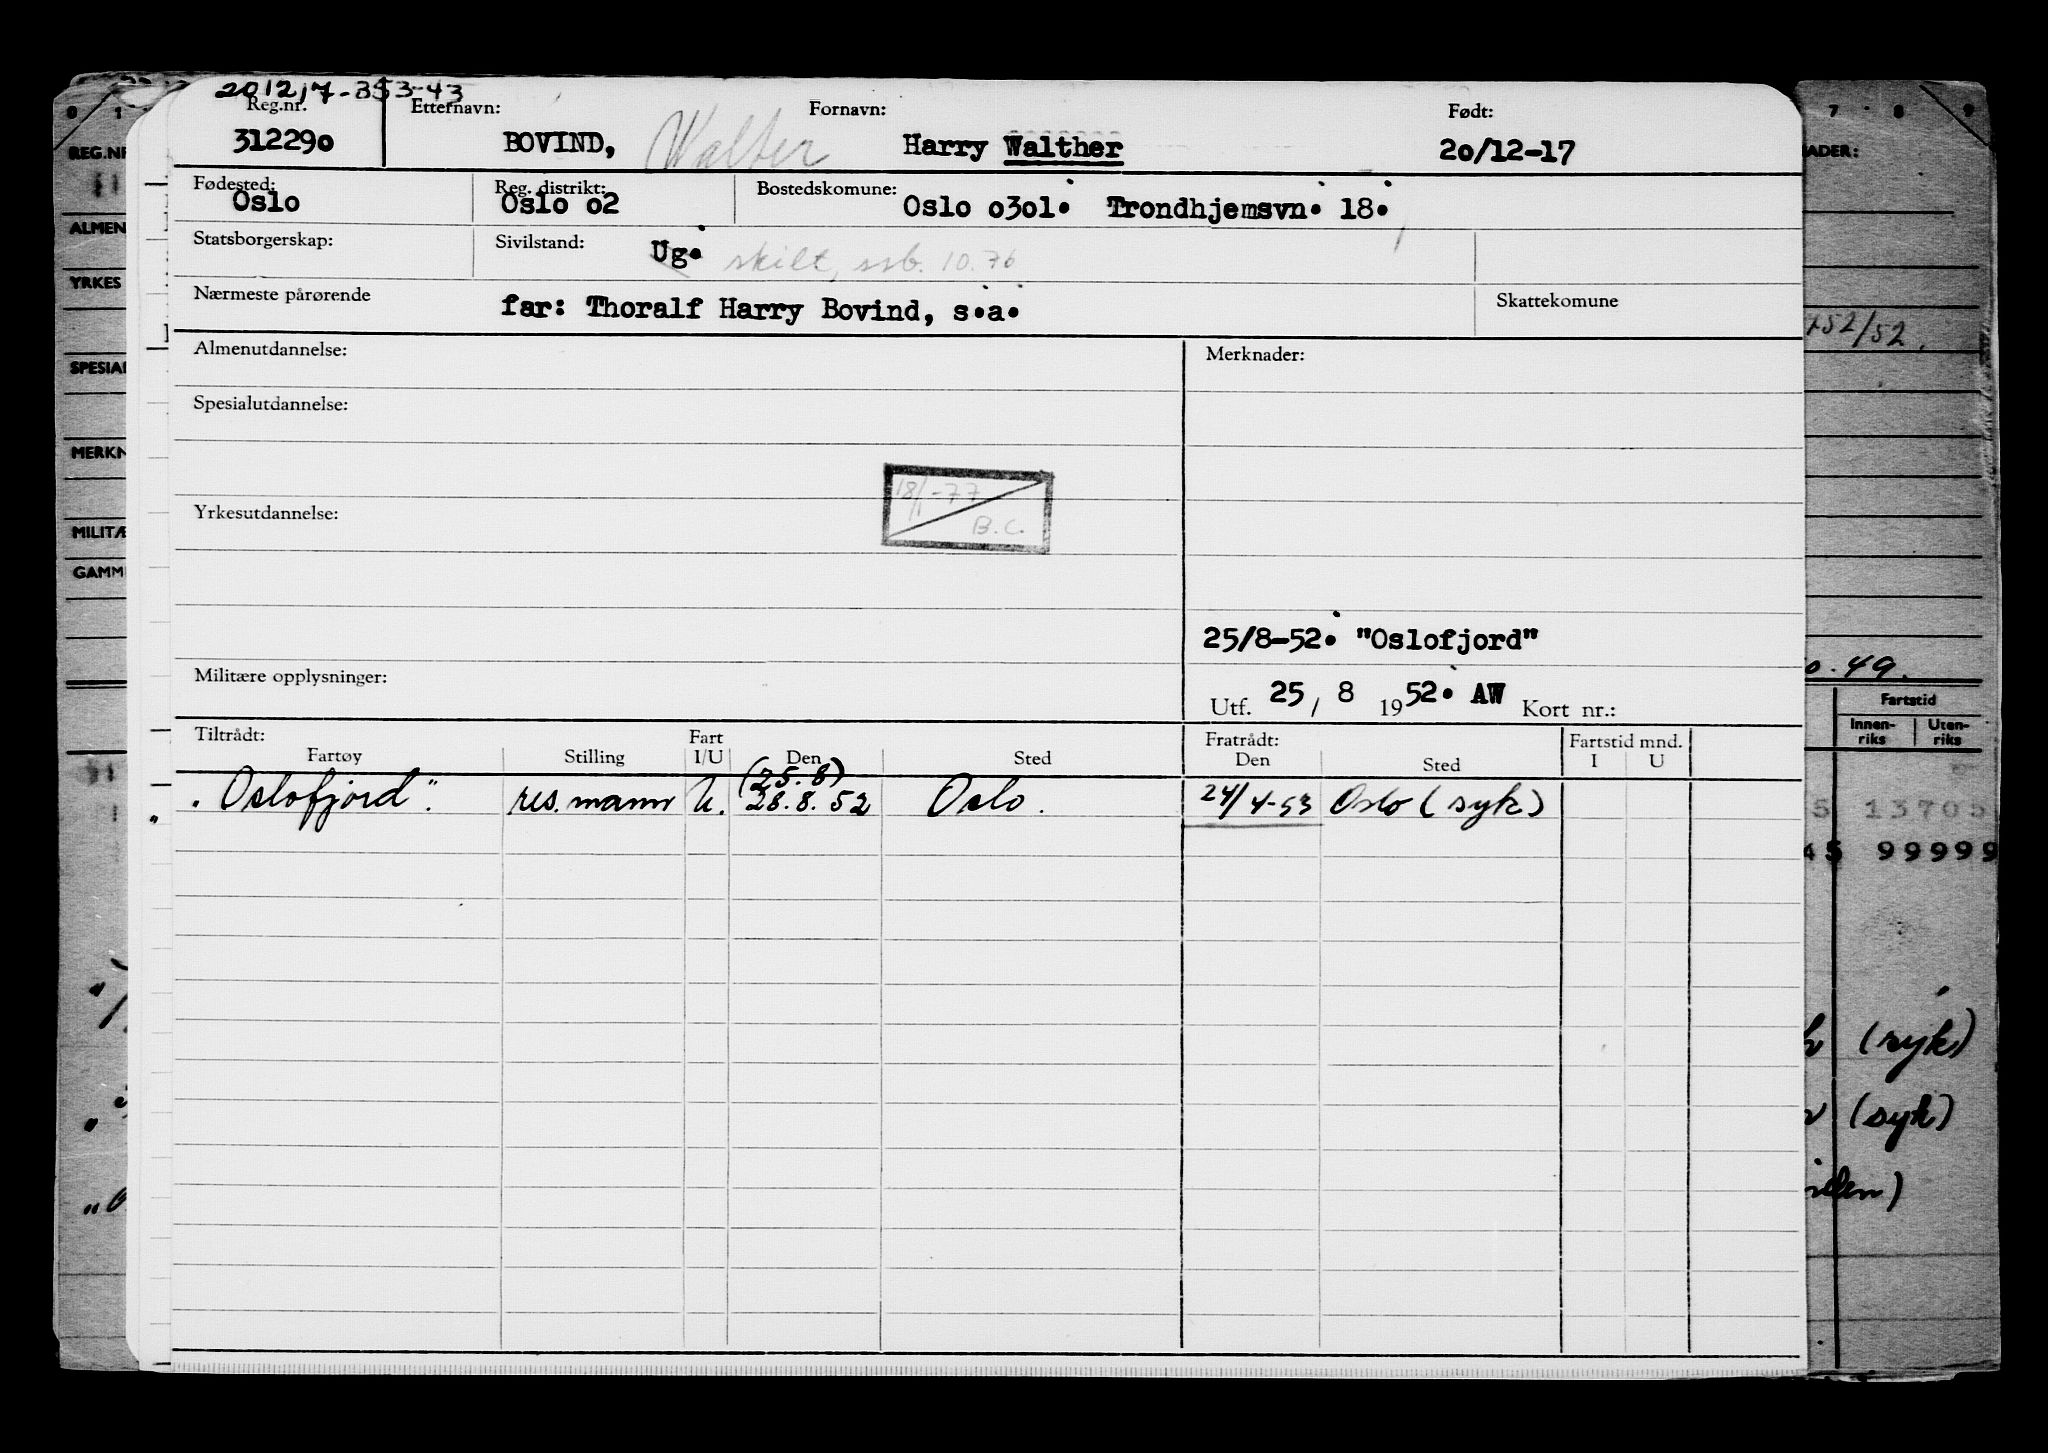 201217-353-43
Reg.nr. Etternavn: Fornavn: Født:
312290 BOVIND, Walter Harry Walther 20/12-17
Fødested: Reg. distrikt: Bostedskomune:
Oslo Oslo 02 Oslo 0301. Trondhjemsvn. 18.
Statsborgerskap: Sivilstand: Ug. skilt, ssb. 10.76
Nærmeste pårørende far: Thoralf Harry Bovind, s.a. Skattekomune
Almenutdannelse: Merknader:
Spesialutdannelse:
18/1-77
B.C.
Yrkesutdannelse:
25/8-52. "Oslofjord"
Militære opplysninger:
Utf. 25 / 8 1952. AW Kort nr.:
Tiltrådt: Fart Fratrådt: Fartstid mnd.
Fartøy Stilling I/U Den Sted Den Sted I U
(25.8)
"Oslofjord". res. mann U. 28.8.52 Oslo. 24/4-53 Oslo (syk)
0 1
REG.NR
ALMEN
YRKES
SPESIAL
MERKN
MILITÆ
GAMM
7 8 9
NADER:
752/52.
49.
Fartstid
Innen-riks Uten-riks
5 13705
45 99999
(syk)
(syk)